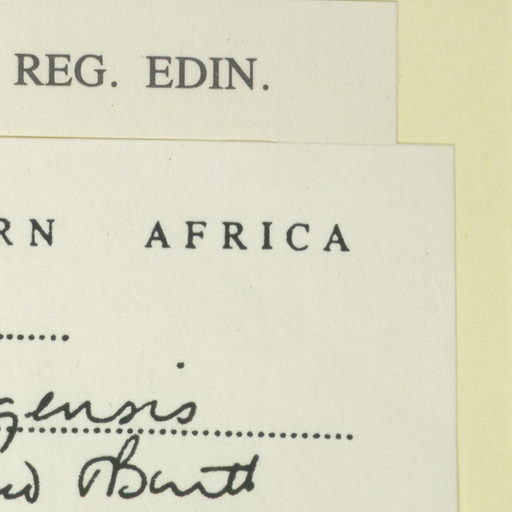 REG. EDIN.
RN AFRICA
gensis
Burtt